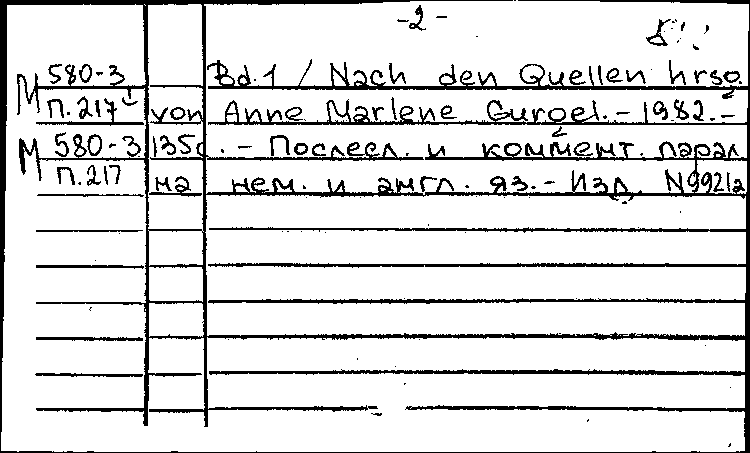 -2-
М 580-3 Bd.1 / Nach den Quellen hrsg.
П.217 von Anne Marlene Gurgel. - 1982. -
М 580-3 135с. - Послесл. и коммент. парал.
П.217 на нем. и англ. яз. - Изд. N9921a